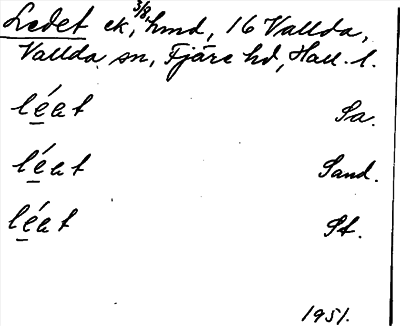 Ledet ek, 3/8, hmd, 16 Vallda,
Vallda sn, Fjäre hd, Hall. l.
léat Sa.
léat Sand.
léat St.
1951.